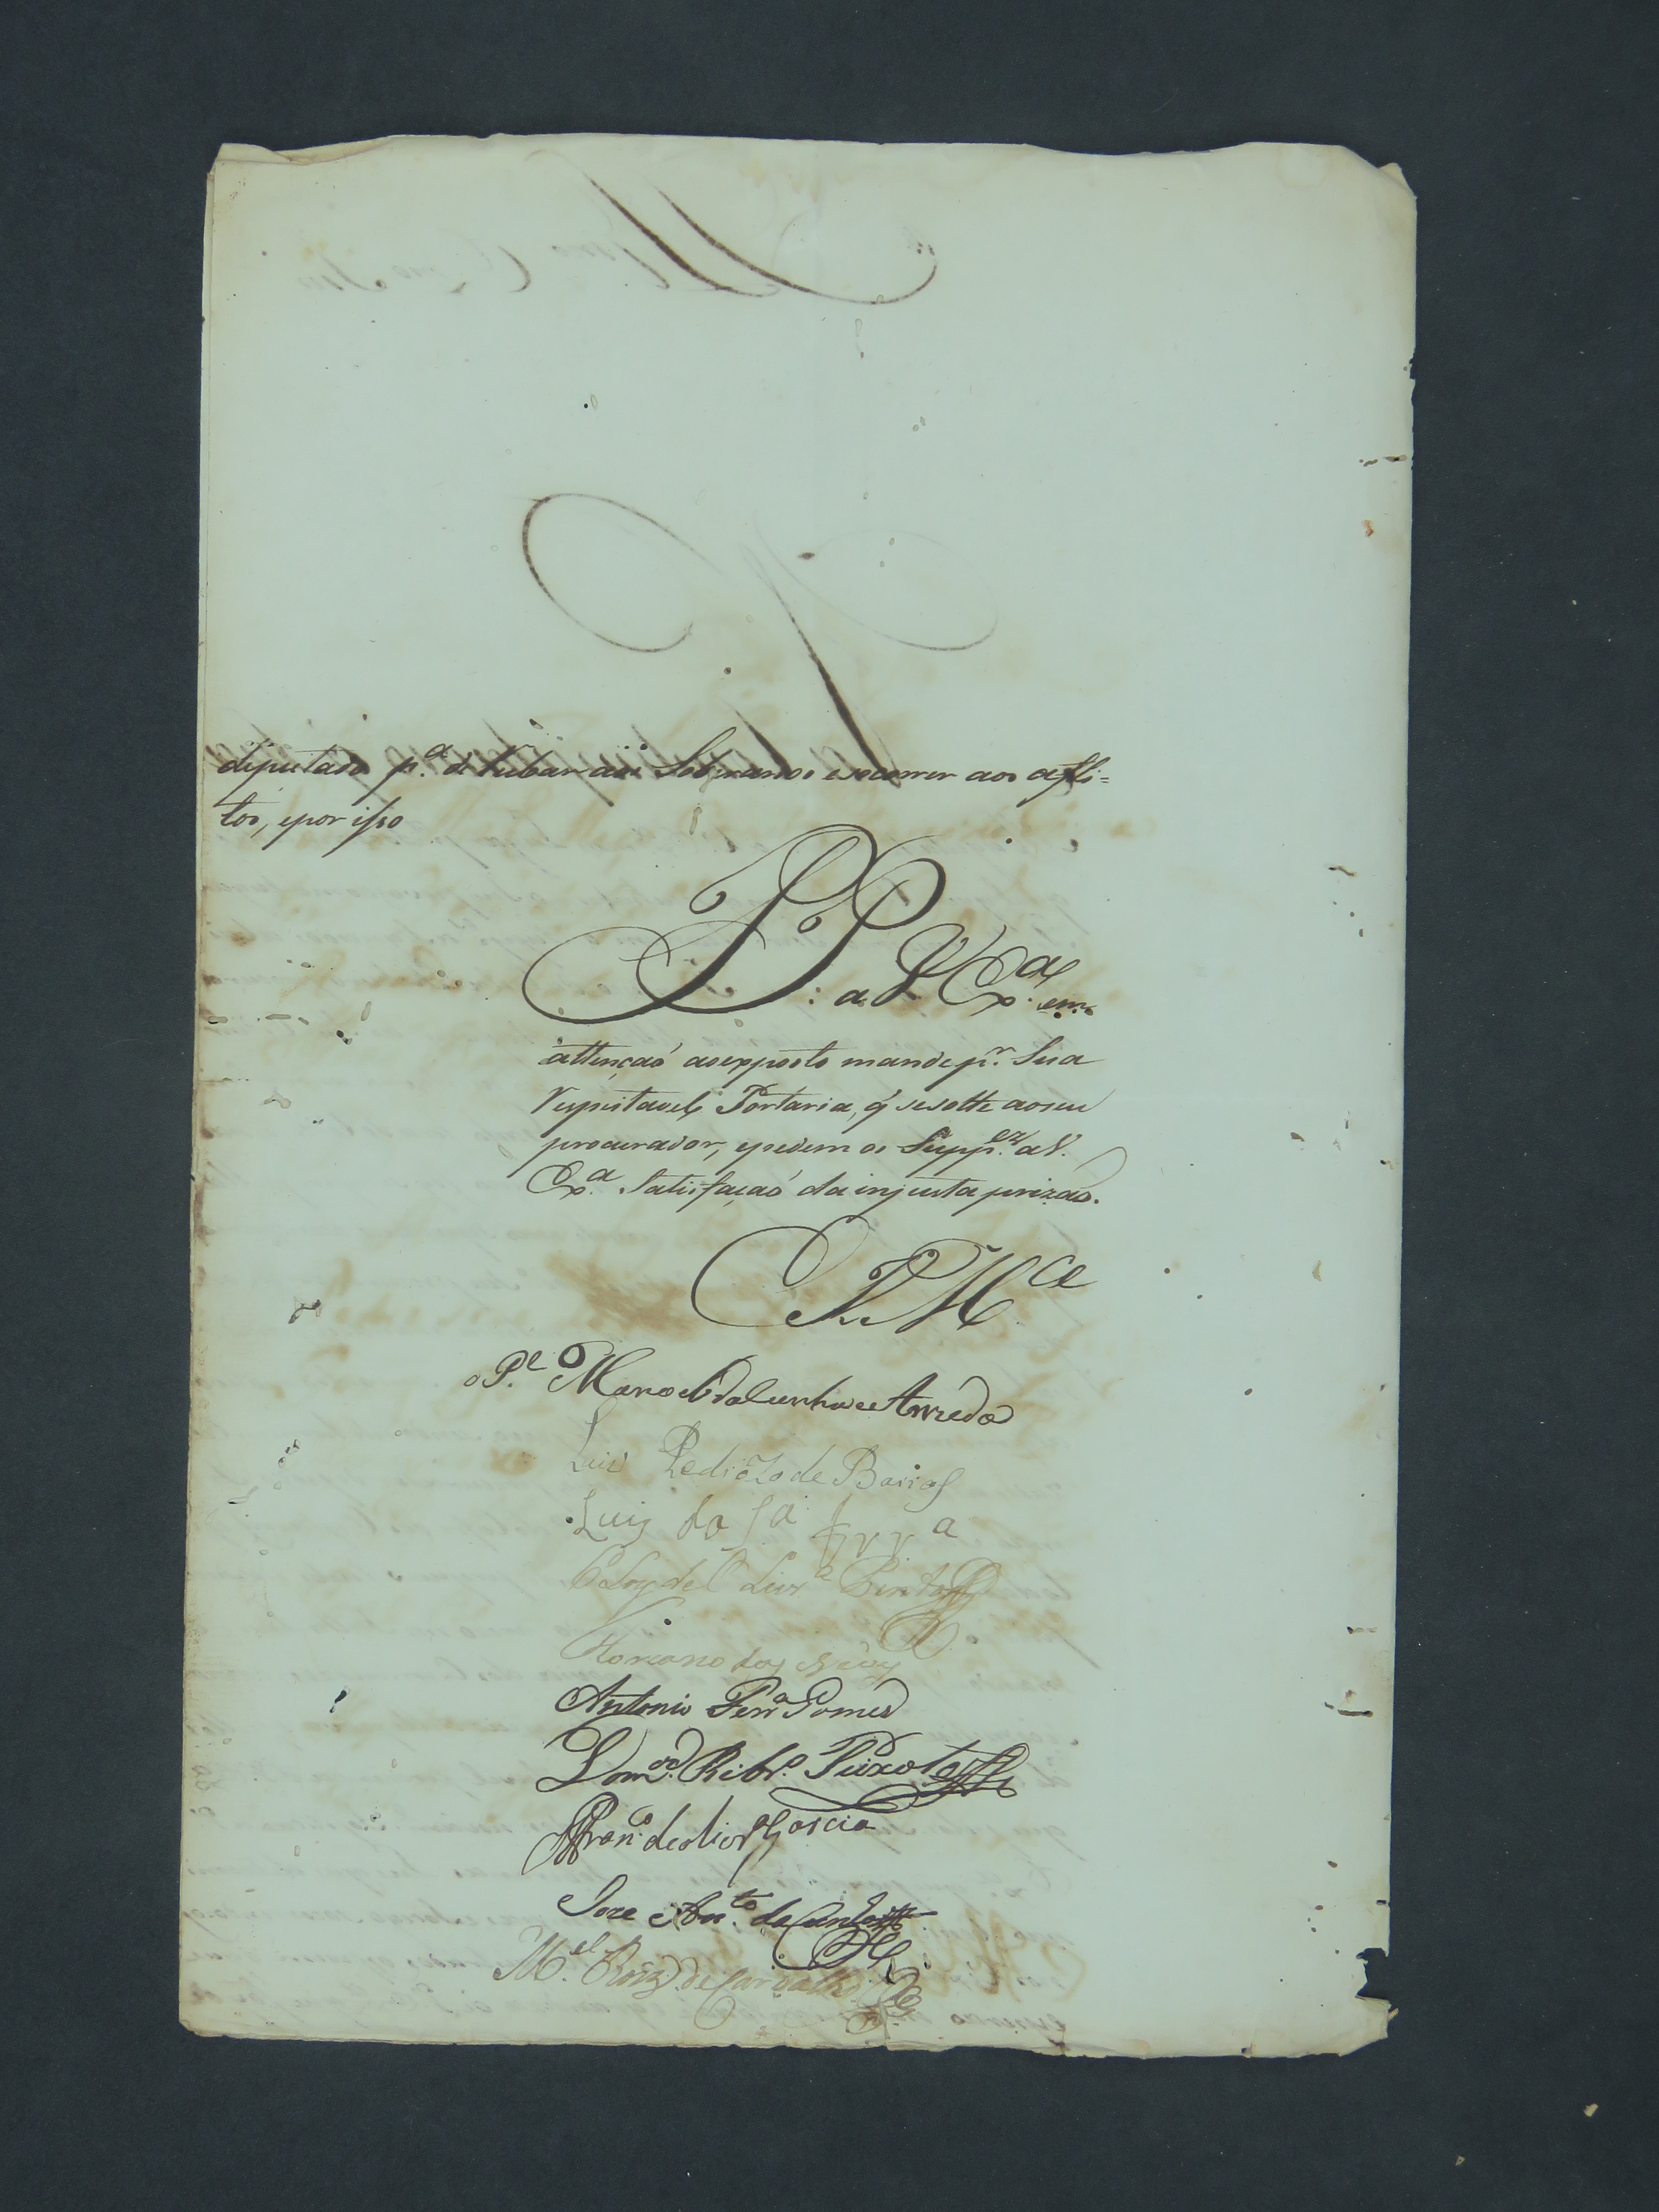 diputado p.ª de Rubar aos Soberanos esocorrer aos afli=
tos, epor isso
PP: a V Ex.ª em
attençaõ aoexposto mande p.r Sua
Respeitavel Portaria, q̃ sesolte aoseu
procurador, epedem os Supp.es a V.
Ex.ª Satisfaçaõ da injusta prizaõ.
E R M.ce
o P.e Manoel da Cunha e Azredo
Luis Pedrozo de Barros
Luis da S.ª Frr.ª
Pinto
Floriano das Neves
Antonio Ferr.ª Gomes
Dom.os Ribr.o Peixoto
Fran.co de Olivr.ª Garcia
Joze Ant.to da Cunha
M.el Roiz de Carvalho